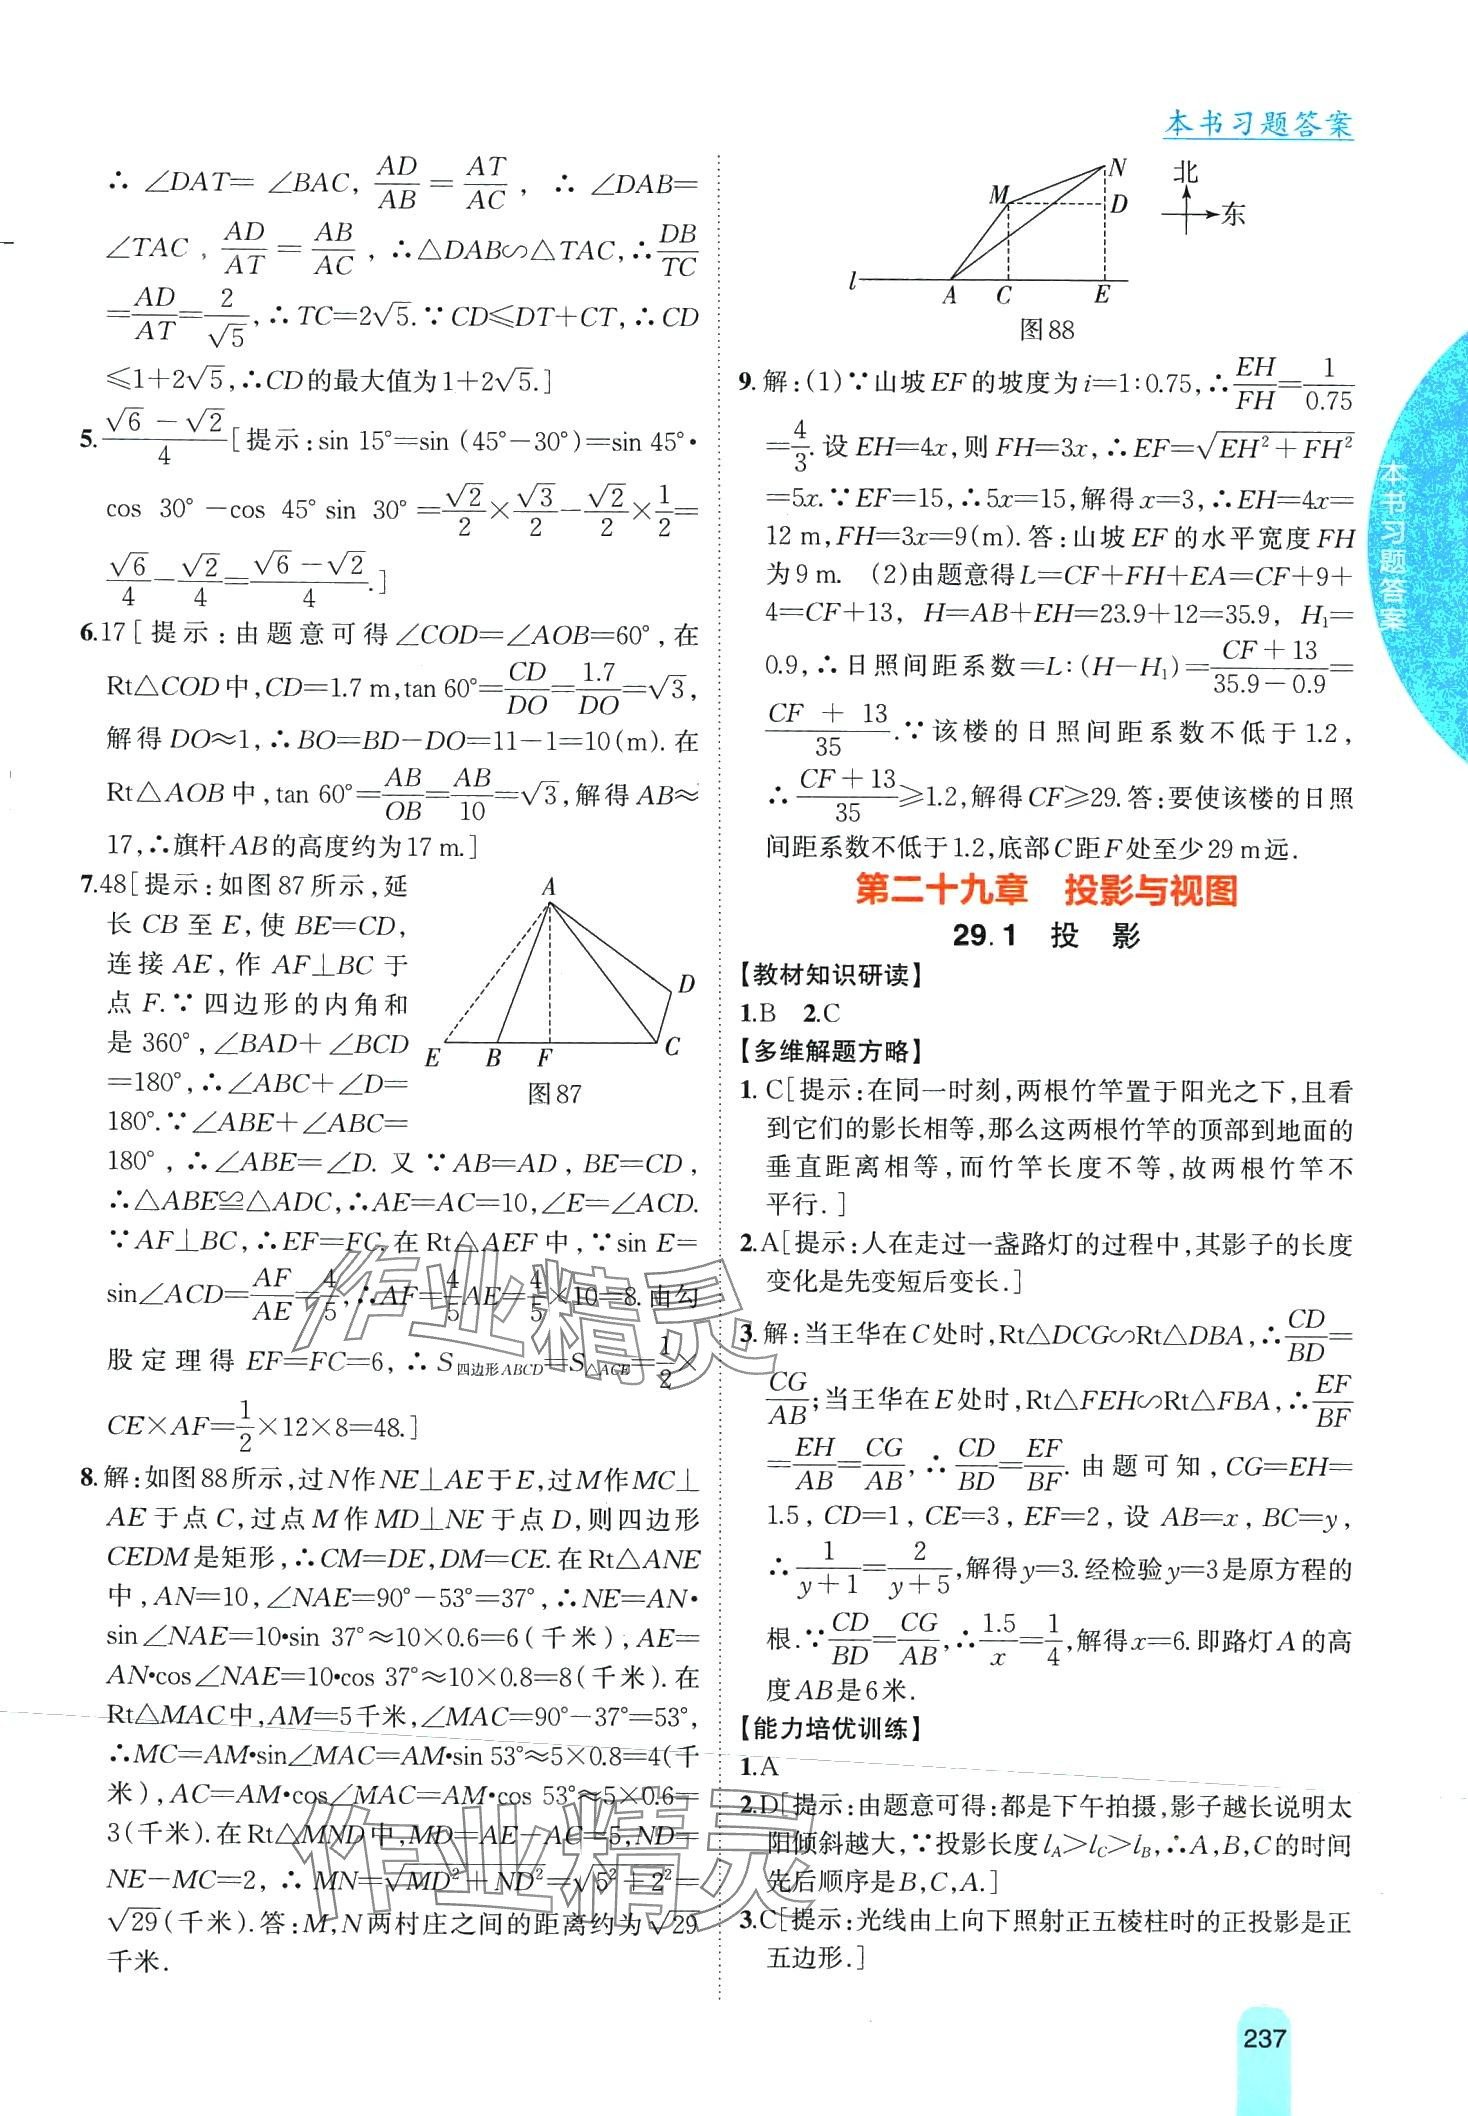 本书习题答案
∴ ∠DAT= ∠BAC, AD/AB = AT/AC , ∴ ∠DAB=
∠TAC , AD/AT = AB/AC , ∴△DAB∽△TAC,∴DB/TC
=AD/AT=2/√5,∴TC=2√5.∵CD≤DT+CT,∴CD
≤1+2√5,∴CD的最大值为1+2√5.]
5.(√6-√2)/4[提示:sin 15°=sin (45°-30°)=sin 45°·
cos 30°-cos 45°sin 30°=√2/2×√3/2-√2/2×1/2=
√6/4-√2/4=(√6-√2)/4.]
6.17[提示:由题意可得∠COD=∠AOB=60°,在
Rt△COD中,CD=1.7 m,tan 60°=CD/DO=1.7/DO=√3,
解得DO≈1,∴BO=BD-DO=11-1=10(m).在
Rt△AOB中,tan 60°=AB/OB=AB/10=√3,解得AB≈
17,∴旗杆AB的高度约为17 m.]
7.48[提示:如图87所示,延
长CB至E,使BE=CD,
连接AE,作AF⊥BC于
点F.∵四边形的内角和
是360°,∠BAD+∠BCD
=180°,∴∠ABC+∠D=
180°.∵∠ABE+∠ABC=
A
D
E B F C
图87
180°,∴∠ABE=∠D.又∵AB=AD,BE=CD,
∴△ABE≌△ADC,∴AE=AC=10,∠E=∠ACD.
∵AF⊥BC,∴EF=FC.在Rt△AEF中,∵sin E=
sin∠ACD=AF/AE=4/5,∴AF=4/5AE=4/5×10=8.由勾
股定理得EF=FC=6,∴S四边形ABCD=S△ACE=1/2×
CE×AF=1/2×12×8=48.]
8.解:如图88所示,过N作NE⊥AE于E,过M作MC⊥
AE于点C,过点M作MD⊥NE于点D,则四边形
CEDM是矩形,∴CM=DE,DM=CE.在Rt△ANE
中,AN=10,∠NAE=90°-53°=37°,∴NE=AN·
sin∠NAE=10·sin 37°≈10×0.6=6(千米),AE=
AN·cos∠NAE=10·cos 37°≈10×0.8=8(千米).在
Rt△MAC中,AM=5千米,∠MAC=90°-37°=53°,
∴MC=AM·sin∠MAC=AM·sin 53°≈5×0.8=4(千
米),AC=AM·cos∠MAC=AM·cos 53°≈5×0.6=
3(千米).在Rt△MND中,MD=AE-AC=5,ND=
NE-MC=2,∴MN=√(MD²+ND²)=√(5²+2²)=
√29(千米).答:M,N两村庄之间的距离约为√29
千米.
N
M D
l A C E
北
东
图88
9.解:(1)∵山坡EF的坡度为i=1:0.75,∴EH/FH=1/0.75
=4/3.设EH=4x,则FH=3x,∴EF=√(EH²+FH²)
=5x.∵EF=15,∴5x=15,解得x=3,∴EH=4x=
12 m,FH=3x=9(m).答:山坡EF的水平宽度FH
为9 m. (2)由题意得L=CF+FH+EA=CF+9+
4=CF+13, H=AB+EH=23.9+12=35.9, H₁=
0.9,∴日照间距系数=L:(H-H₁)=(CF+13)/(35.9-0.9)=
(CF + 13)/35.∵该楼的日照间距系数不低于1.2,
∴(CF+13)/35≥1.2,解得CF≥29.答:要使该楼的日照
间距系数不低于1.2,底部C距F处至少29 m远.
第二十九章 投影与视图
29.1 投 影
【教材知识研读】
1.B 2.C
【多维解题方略】
1.C[提示:在同一时刻,两根竹竿置于阳光之下,且看
到它们的影长相等,那么这两根竹竿的顶部到地面的
垂直距离相等,而竹竿长度不等,故两根竹竿不
平行.]
2.A[提示:人在走过一盏路灯的过程中,其影子的长度
变化是先变短后变长.]
3.解:当王华在C处时,Rt△DCG∽Rt△DBA,∴CD/BD=
CG/AB;当王华在E处时,Rt△FEH∽Rt△FBA,∴EF/BF
=EH/AB=CG/AB,∴CD/BD=EF/BF.由题可知,CG=EH=
1.5, CD=1, CE=3, EF=2, 设 AB=x, BC=y,
∴1/(y+1)=2/(y+5),解得y=3.经检验y=3是原方程的
根.∵CD/BD=CG/AB,∴1.5/x=1/4,解得x=6.即路灯A的高
度AB是6米.
【能力培优训练】
1.A
2.D[提示:由题意可得:都是下午拍摄,影子越长说明太
阳倾斜越大,∵投影长度lA>lC>lB,∴A,B,C的时间
先后顺序是B,C,A.]
3.C[提示:光线由上向下照射正五棱柱时的正投影是正
五边形.]
本书习题答案
作业精灵
作业精灵
237